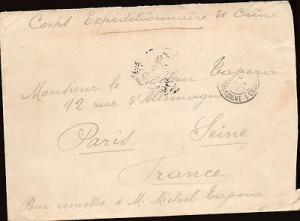 Corps Expéditionnaire de Chine
Monsieur le Tapera
92 rue d'Allemagne
Paris Seine
France
Pour remettre à M. Michel Tapera